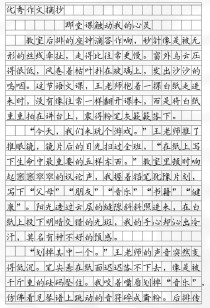 优秀作文摘抄
那堂课触动我的心灵
教室后排的座钟滴答作响，秒针像是被无
形的丝线牵扯，走得比往常更慢。窗外乌云压
得很低，风卷着枯叶拍在玻璃上，发出沙沙的
呜咽。这节语文课，王老师抱着一摞白纸走进
来时，没有像往常一样翻开课本，而是将白纸
重重拍在讲台上，震得粉笔灰簌簌落下。
“今天，我们来玩个游戏。”王老师推了
推眼镜，镜片后的目光扫过全班，“在纸上写
下生命中最重要的五样东西。”教室里顿时响
起窸窸窣窣的议论声，我握着铅笔微微
写下“父母”“朋友”“音乐”“书籍”“健
康”。阳光透过云层的缝隙斜斜照进来，在白
纸上投下明暗交错的光斑，我的手心却沁出冷
汗，莫名有种不好的预感。
“划掉其中一个。”王老师的声音突然变
得低沉。笔尖悬在纸面迟迟落不下去，像是被
千斤重的砝码坠住。我咬着嘴唇划掉“音乐”，
仿佛看见琴谱上跳动的音符碎成齑粉。后排传